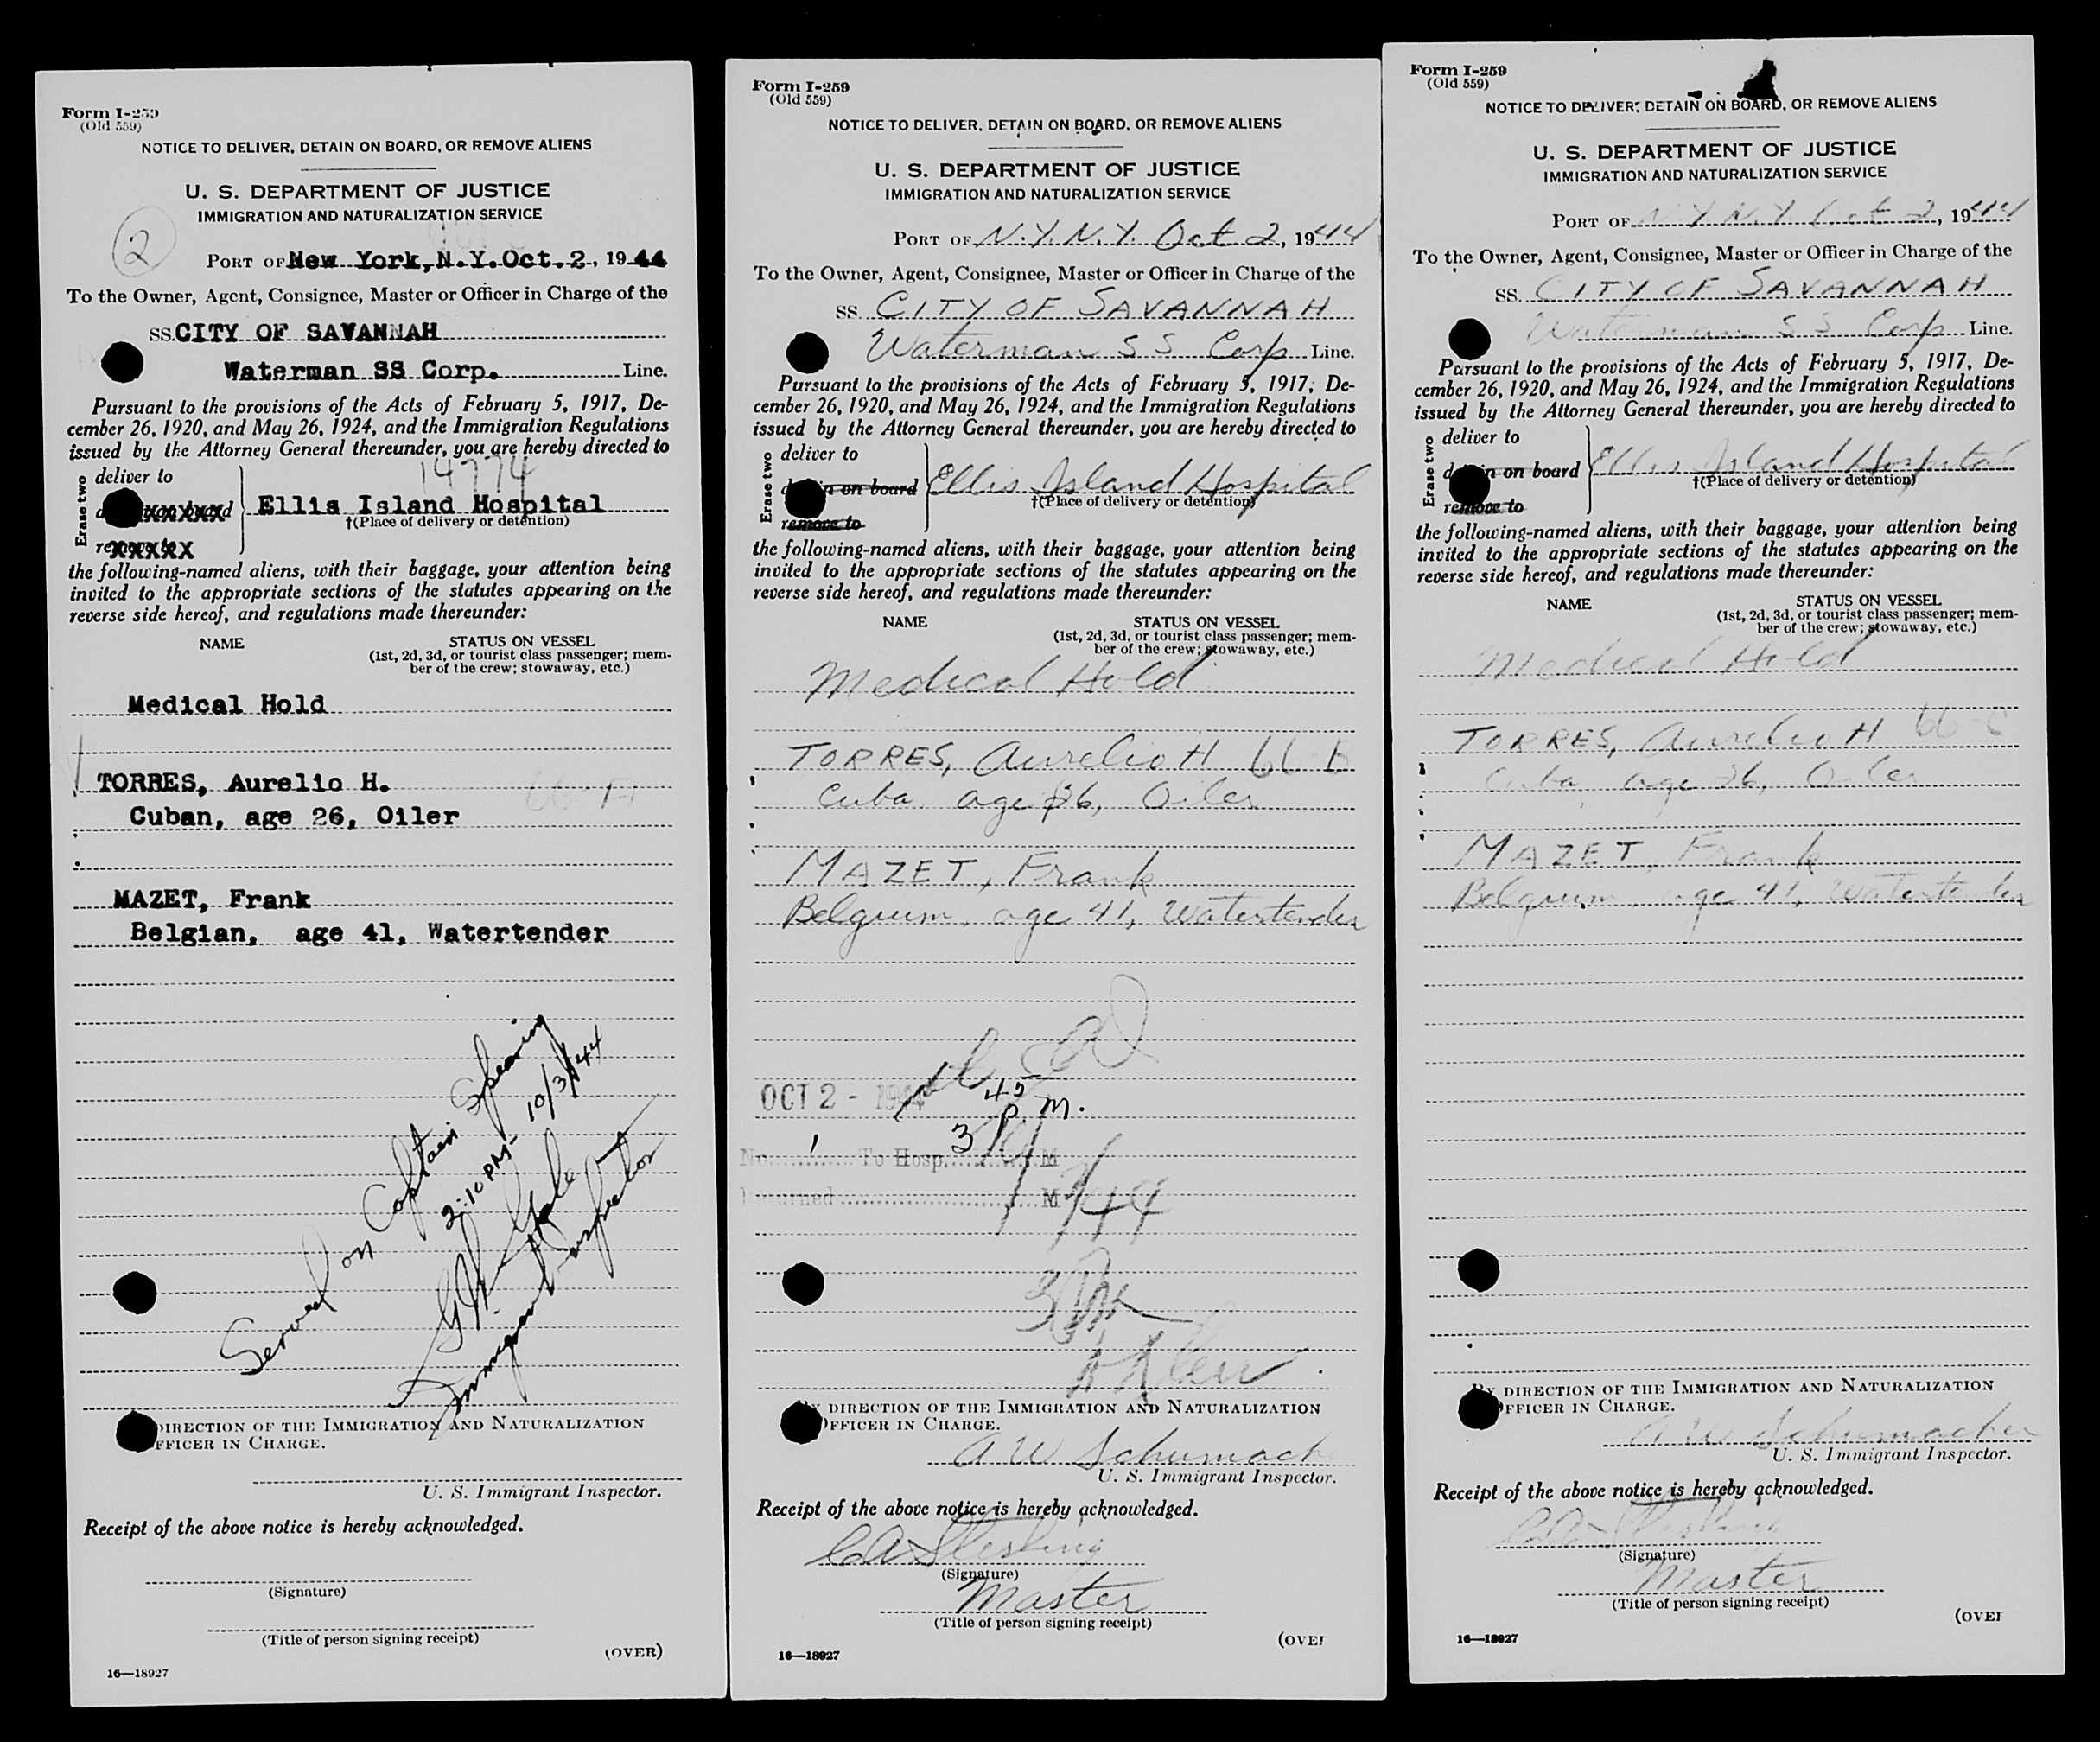 Form I-259
(Old 559)
NOTICE TO DELIVER, DETAIN ON BOARD, OR REMOVE ALIENS
U. S. DEPARTMENT OF JUSTICE
IMMIGRATION AND NATURALIZATION SERVICE
2
PORT OF New York, N.Y. Oct. 2, 1944
To the Owner, Agent, Consignee, Master or Officer in Charge of the
SS. CITY OF SAVANNAH
Waterman SS Corp. Line.
Pursuant to the provisions of the Acts of February 5, 1917, De-
cember 26, 1920, and May 26, 1924, and the Immigration Regulations
issued by the Attorney General thereunder, you are hereby directed to
14774
Erase two
deliver to
Ellis Island Hospital
†(Place of delivery or detention)
the following-named aliens, with their baggage, your attention being
invited to the appropriate sections of the statutes appearing on the
reverse side hereof, and regulations made thereunder:
NAME STATUS ON VESSEL
(1st, 2d, 3d, or tourist class passenger; mem-
ber of the crew; stowaway, etc.)
Medical Hold
TORRES, Aurelio H. 66-A
Cuban, age 26, Oiler
MAZET, Frank
Belgian, age 41, Watertender
Served on Captain
2:10 PM- 10/3/44
Immigrant Inspector
DIRECTION OF THE IMMIGRATION AND NATURALIZATION
OFFICER IN CHARGE.
U. S. Immigrant Inspector.
Receipt of the above notice is hereby acknowledged.
(Signature)
(Title of person signing receipt)
(OVER)
16—18927
Form I-259
(Old 559)
NOTICE TO DELIVER, DETAIN ON BOARD, OR REMOVE ALIENS
U. S. DEPARTMENT OF JUSTICE
IMMIGRATION AND NATURALIZATION SERVICE
PORT OF N.Y. N.Y. Oct 2, 1944
To the Owner, Agent, Consignee, Master or Officer in Charge of the
SS. CITY OF SAVANNAH
Waterman SS Corp Line.
Pursuant to the provisions of the Acts of February 5, 1917, De-
cember 26, 1920, and May 26, 1924, and the Immigration Regulations
issued by the Attorney General thereunder, you are hereby directed to
Erase two
deliver to
detain on board
remove to
Ellis Island Hospital
†(Place of delivery or detention)
the following-named aliens, with their baggage, your attention being
invited to the appropriate sections of the statutes appearing on the
reverse side hereof, and regulations made thereunder:
NAME STATUS ON VESSEL
(1st, 2d, 3d, or tourist class passenger; mem-
ber of the crew; stowaway, etc.)
Medical Hold
TORRES, Aurelio H 66 B
Cuba age 26, Oiler
MAZET, Frank
Belgium, age 41, Watertender
OCT 2 - 1944
3 45 P.M.
No. 1 To Hosp. M
Returned M
BY DIRECTION OF THE IMMIGRATION AND NATURALIZATION
OFFICER IN CHARGE.
A W Schumach
U. S. Immigrant Inspector.
Receipt of the above notice is hereby acknowledged.
(Signature)
Master
(Title of person signing receipt)
(OVER
16—18927
Form I-259
(Old 559)
NOTICE TO DELIVER, DETAIN ON BOARD, OR REMOVE ALIENS
U. S. DEPARTMENT OF JUSTICE
IMMIGRATION AND NATURALIZATION SERVICE
PORT OF N Y N.Y Oct 2, 1944
To the Owner, Agent, Consignee, Master or Officer in Charge of the
SS. CITY OF SAVANNAH
Waterman SS Corp Line.
Pursuant to the provisions of the Acts of February 5, 1917, De-
cember 26, 1920, and May 26, 1924, and the Immigration Regulations
issued by the Attorney General thereunder, you are hereby directed to
Erase two
deliver to
detain on board
remove to
Ellis Island Hospital
†(Place of delivery or detention)
the following-named aliens, with their baggage, your attention being
invited to the appropriate sections of the statutes appearing on the
reverse side hereof, and regulations made thereunder:
NAME STATUS ON VESSEL
(1st, 2d, 3d, or tourist class passenger; mem-
ber of the crew; stowaway, etc.)
Medical Hold
TORRES, Aurelio H 66 C
Cuba age 26, Oiler
MAZET, Frank
Belgium, age 41, Watertender
BY DIRECTION OF THE IMMIGRATION AND NATURALIZATION
OFFICER IN CHARGE.
A W Schumacher
U. S. Immigrant Inspector.
Receipt of the above notice is hereby acknowledged.
(Signature)
Master
(Title of person signing receipt)
(OVER
16—18927